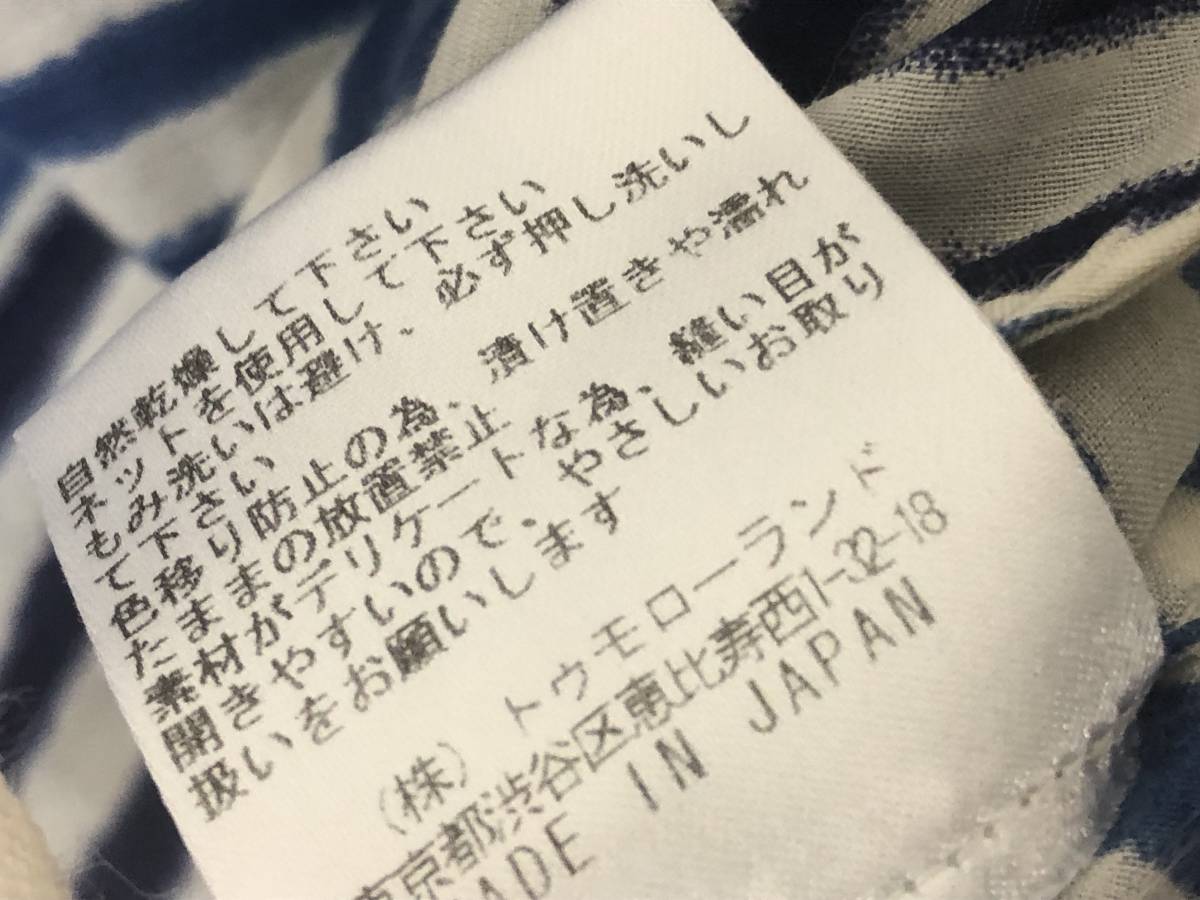 自然乾燥して下さい
ネットを使用して下さい
もみ洗いは避け、必ず押し洗いし
て下さい
色移り防止の為、漬け置きや濡れ
たままの放置禁止
素材がデリケートな為、縫い目が
開きやすいので、やさしいお取り
扱いをお願いします
(株)トゥモローランド
東京都渋谷区恵比寿西1-32-18
MADE IN JAPAN